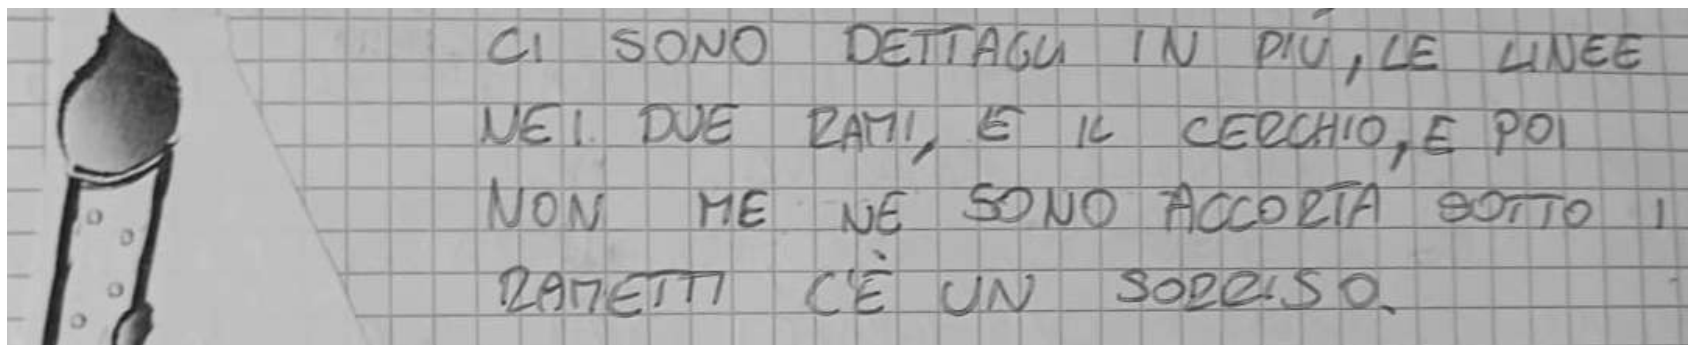 CI SONO DETTAGLI IN PIÙ, LE LINEE
NEI DUE RAMI, E IL CERCHIO, E POI
NON ME NE SONO ACCORTA SOTTO I
RAMETTI C'È UN SORRISO.